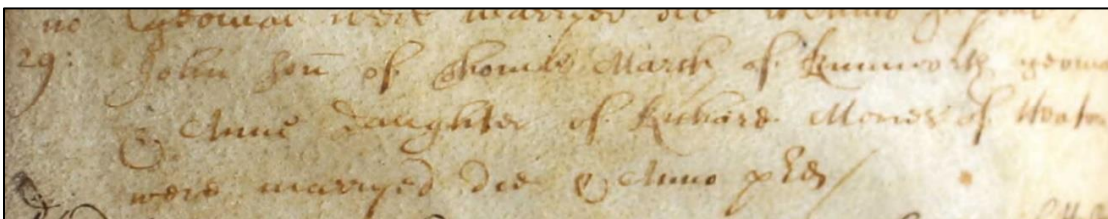 yeoman were marryed die
29: John son of Thomas March of Rumworth yeoma
& Anne daughter of Richard of Heaton
were marryed die & Anno